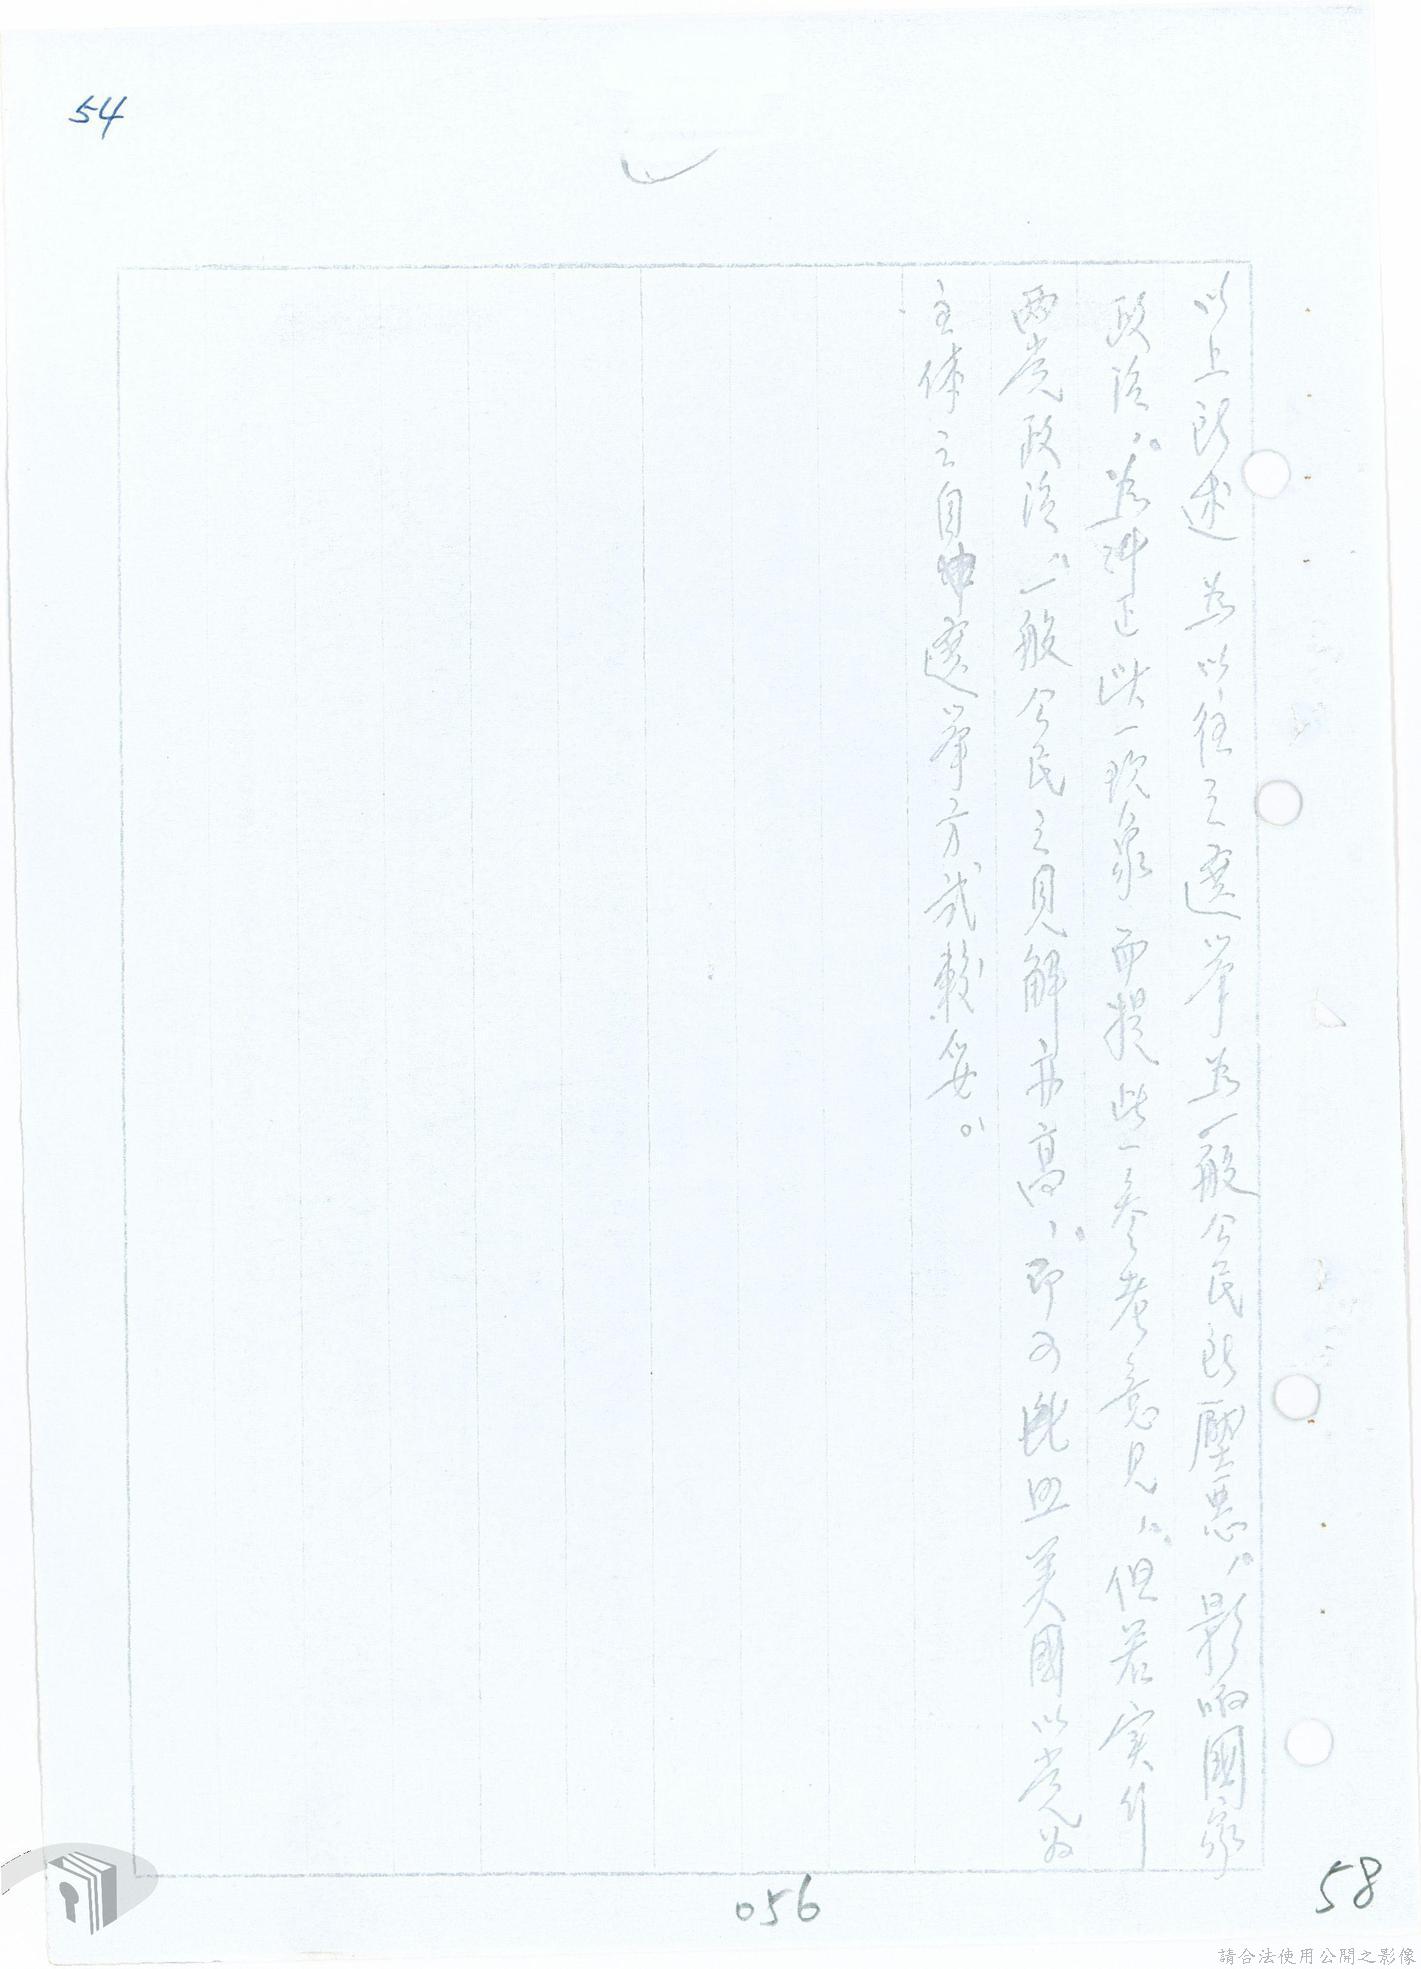 54
以上所述為以往之選舉為一般公民所壓惡，影响國家
政治，為糾正此一現象而提此一參考意見，但若实行
兩党政治，一般公民之見解亦高，即可此照美國以党為
主体之自由選舉方式較妥。
056
58
請合法使用公開之影像